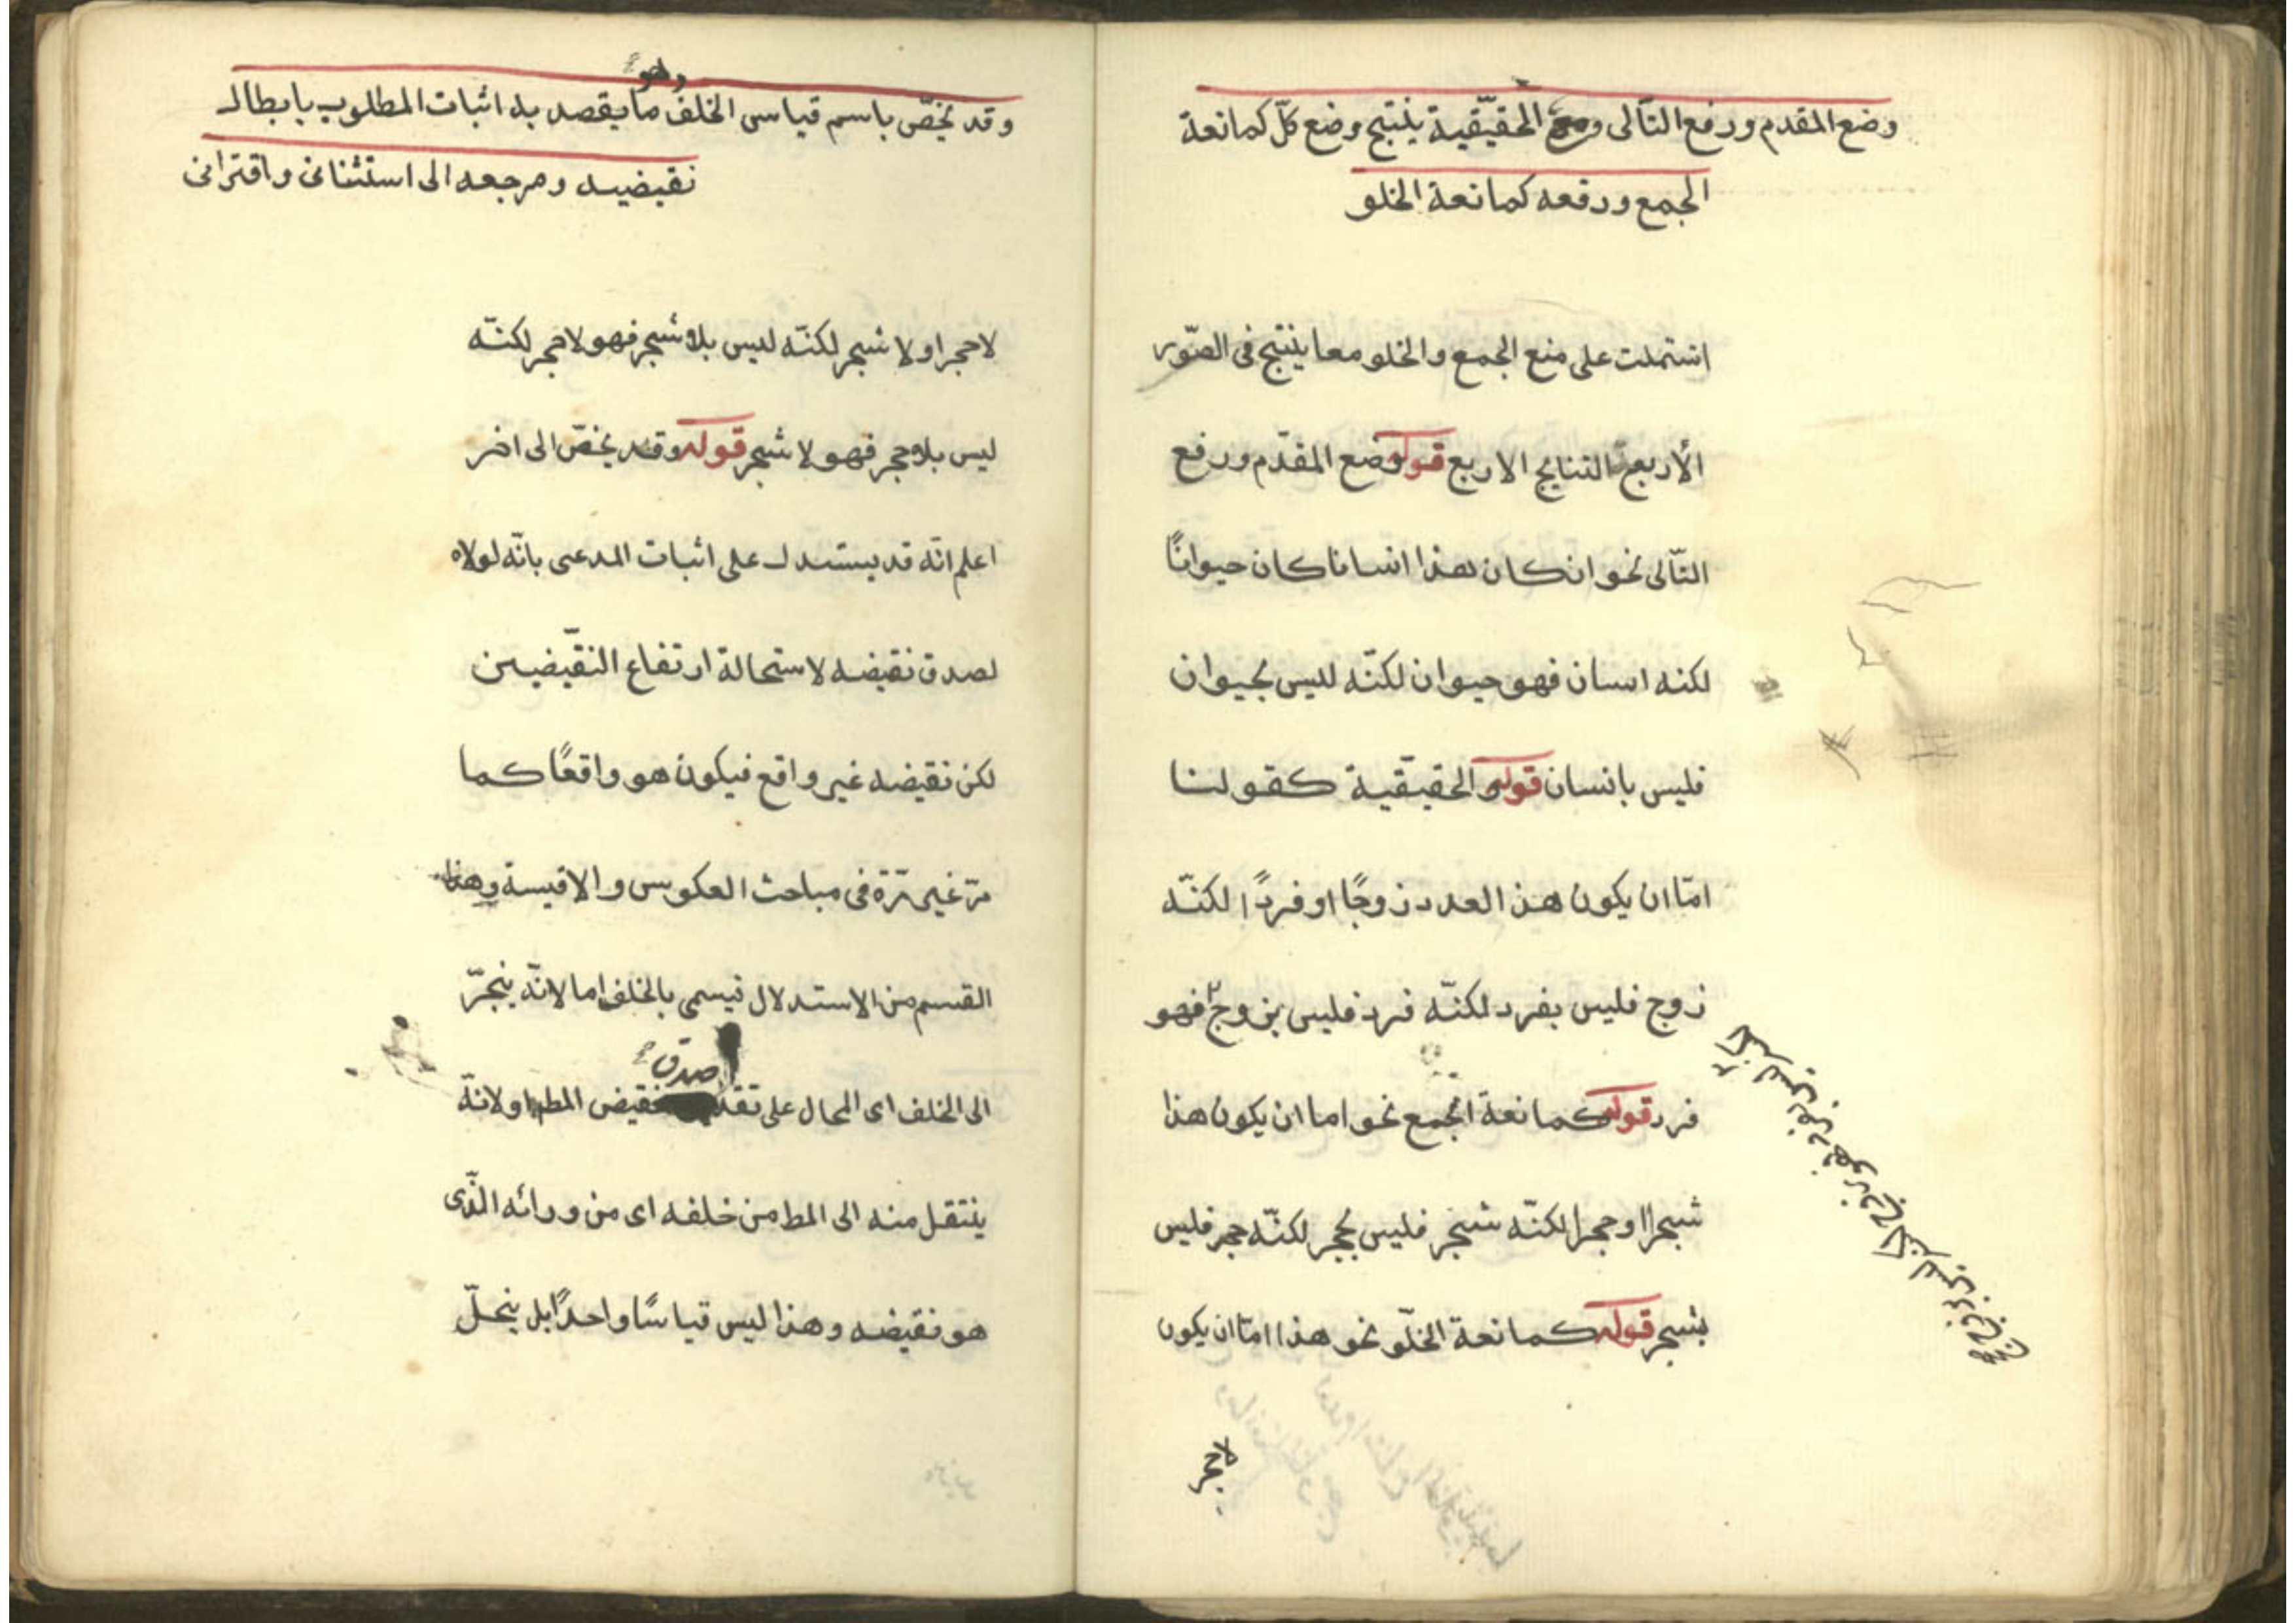 وضع المقدم ورفع التّالى و الحقيقيّة ينتج وضع كلّ كمانعة
الجمع ورفعه كمانعة الخلو
اشتملت على منع الجمع والخلو معا ينتج فى الصّور
الأربع النتايج الاربع قوله وضع المقدّم ورفع
التّالى نحو ان كان هذا انسانا كان حيوانًا
لكنه انسان فهو حيوان لكنّه ليس بحيوان
فليس بانسان قوله والحقيقية كقولنا
امّا ان يكون هذ العدد زوجًا او فردًا لكنّه
زوج فليس بفرد لكنّه فرد فليس بزوج فهو
فرد قوله كمانعة الجمع نحو اما ان يكون هذا
شجرا او حجرا لكنّه شجر فليس بحجر لكنّه حجر فليس
بشجر قوله كمانعة الخلّو نحو هذا امّا ان يكون
لا حجر
وهو
وقد يخصّ باسم قياس الخلف ما يقصد به اثبات المطلوب بابطال
نقيضيه ومرجعه الى استثنائى واقترانى
لا حجر او لا شجر لكنّه ليس بلا شجر فهو لا حجر لكنّه
ليس بلا حجر فهو لا شجر قوله وقد يخصّ الى اخر
اعلم انّه قد يستدل على اثبات المدعى بانّه لولاه
لصدق نقيضه لاستحالة ارتفاع النقيضين
لكن نقيضه غير واقع فيكون هو واقعًا كما
مرّ غير مرّة فى مباحث العكوس والاقيسة وهذا
القسم من الاستدلال يسمى بالخلف اما لانّه ينجرّ
صدق
الى الخلف اى المحال على نقيض المط او لانّه
ينتقل منه الى المط من خلفه اى من ورائه الّذى
هو نقيضه وهذا ليس قياسًا واحدًا بل ينحلّ